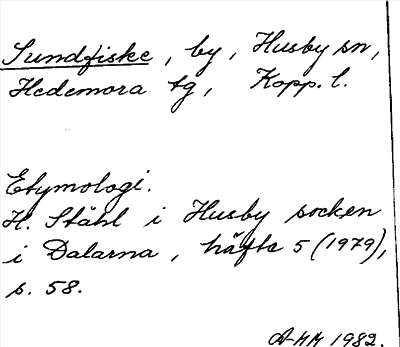 Sundfiske, by, Husby sn,
Hedemora tg, Kopp. l.
Etymologi.
H. Ståhl i Husby socken
i Dalarna, häfte 5 (1979),
s. 58.
A-MM 1982.